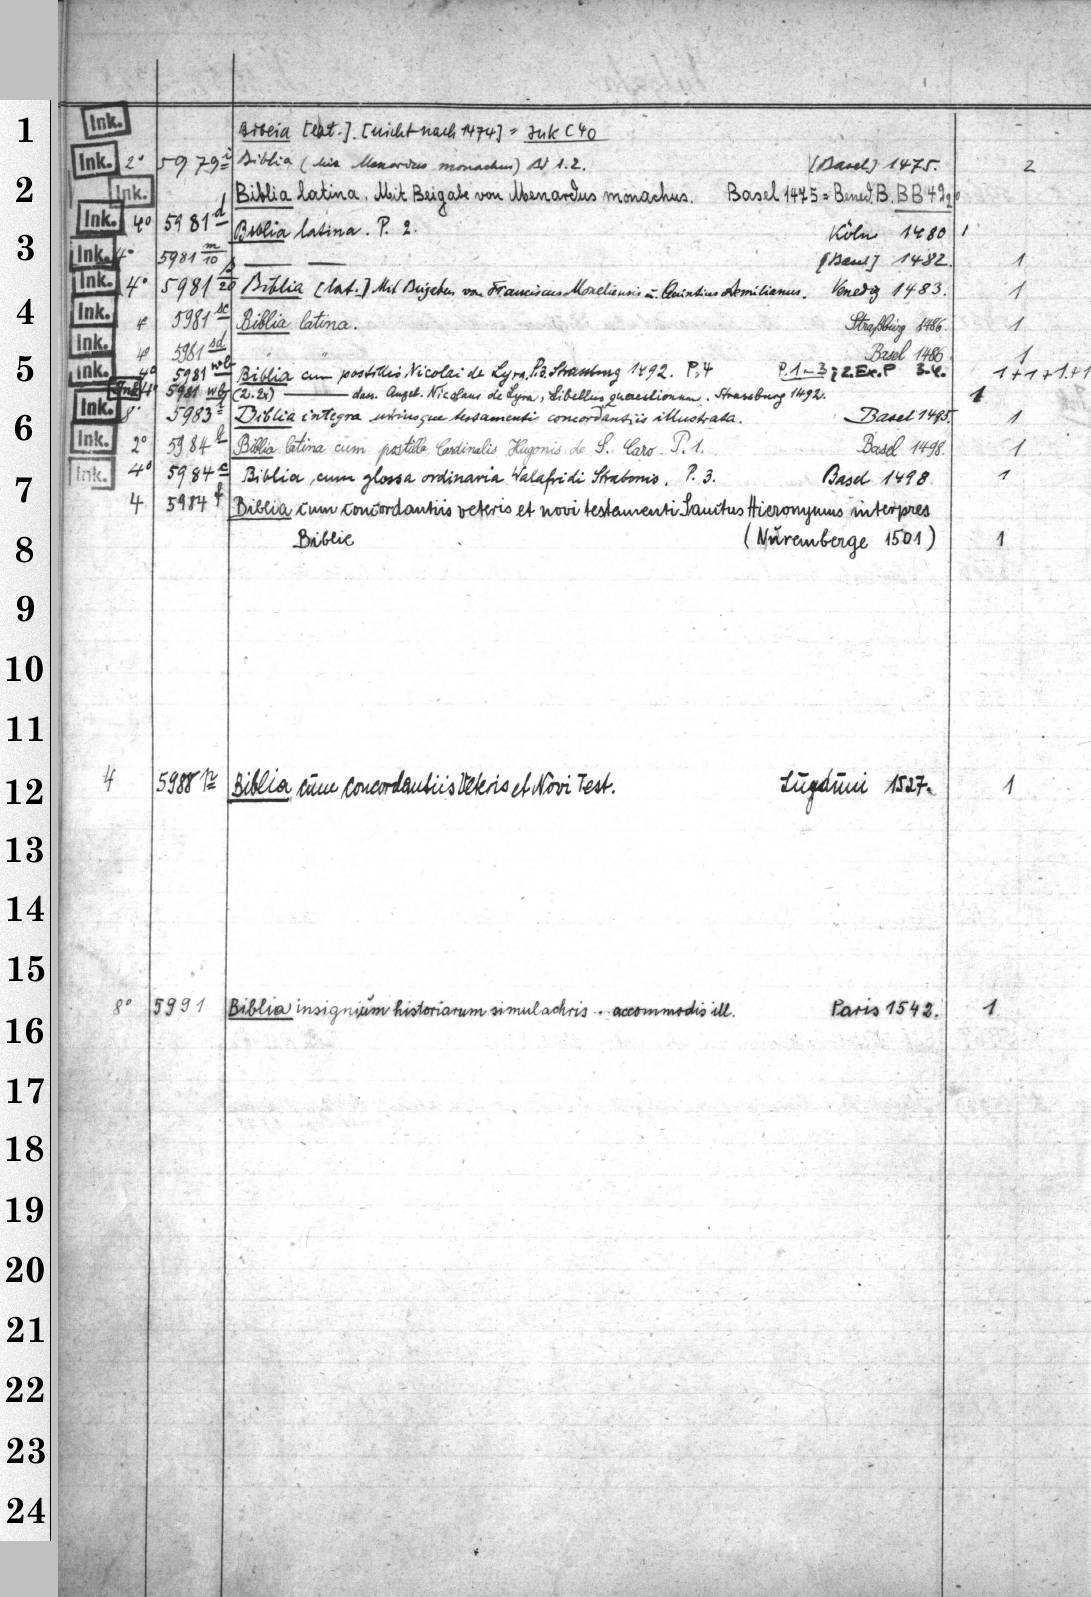 1 Ink. Biblia [lat.]. [nicht nach 1474] = Ink C 40
Ink. 2° 5979 i Biblia (mit Menardus monachus) Bd 1.2. [Basel] 1475. 2
2 Ink. Biblia latina. Mit Beigabe von Menardus monachus. Basel 1475 = Bened. B. BB 42 2°
Ink. 4° 5981 d Biblia latina. P. 2. Köln 1480 1
3 Ink. 4° 5981 m/10 —— —— [Basel] 1482. 1
Ink. 4° 5981 /20 Biblia [lat.] Mit Beigaben von Franciscus Moneliensis u. Quintius Aemilianus. Venedig 1483. 1
4 Ink. 4° 5981 sc Biblia latina. Straßburg 1486. 1
Ink. 4° 5981 sd " " Basel 1486 1
5 Ink. 4° 5981 wb Biblia cum postillis Nicolai de Lyra. P.3. Strassburg 1492. P. 4 P. 1-3; 2. Ex. P 3.4. 1+1+1+1
Ink. 4° 5981 wb (2. Ex) —— dass. Angeb. Nicolaus de Lyra, Libellus quaestionum. Strassburg 1492. 1
6 Ink. 8° 5983 Biblia integra utriusque testamenti concordantiis illustrata. Basel 1495. 1
Ink. 2° 5984 b Biblia latina cum postilla Cardinalis Hugonis de S. Caro P. 1. Basel 1498. 1
7 Ink. 4° 5984 c Biblia, cum glossa ordinaria Walafridi Strabonis. P. 3. Basel 1498 1
4 5984 f Biblia cum concordantiis veteris et novi testamenti Sanctus Hieronymus interpres
8 Biblie (Nuremberge 1501) 1
9
10
11
12 4 5988 n Biblia cum Concordantiis Veteris et Novi Test. Lugduni 1527. 1
13
14
15
16 8° 5991 Biblia insignium historiarum simulachris .. accommodis ill. Paris 1542. 1
17
18
19
20
21
22
23
24